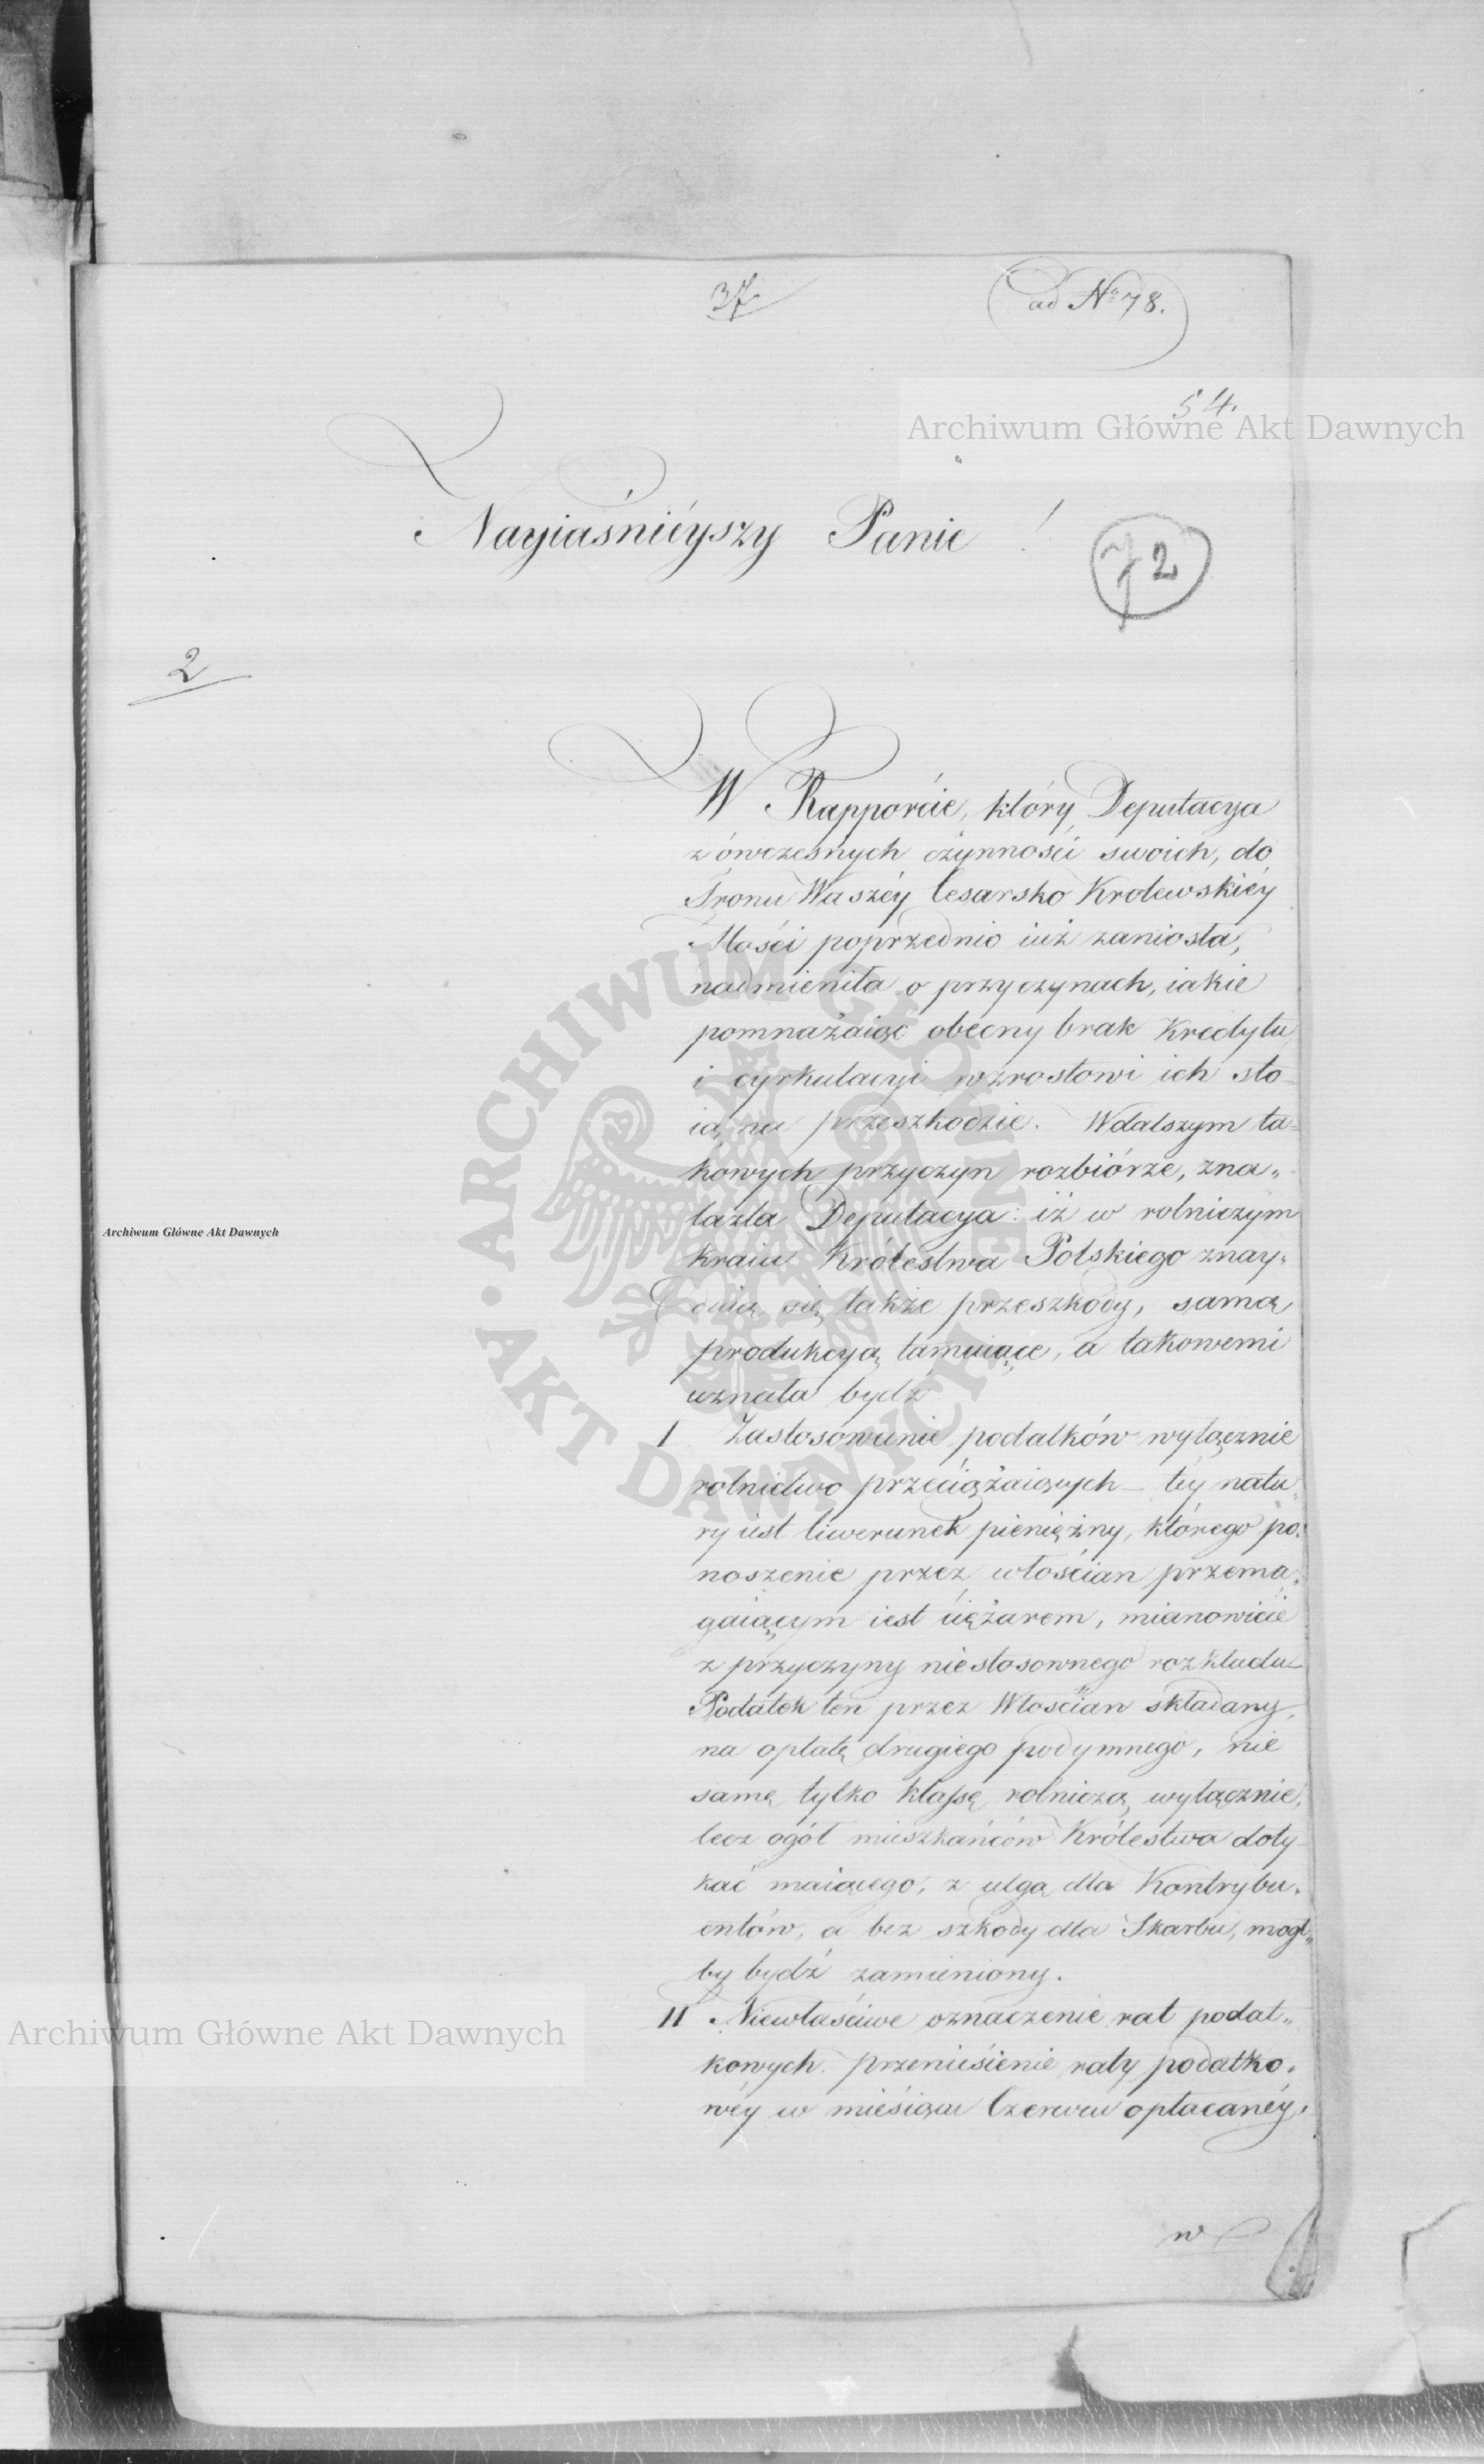 37.
ad No 78.
54.
Archiwum Główne Akt Dawnych
Nayiaśnieyszy Panie !
72
2
W Rapporcie, który Deputacya
z ówczesnych czynności swoich, do
Tronu Waszéy Cesarsko Krolewskiéy
Mości poprzednio iuż zaniosła,
nadmieniła o przyczynach, iakie
pomnażaiąc obecny brak Kredytu
i cyrkulacyi wzrostowi ich sto-
ią na przeszkodzie. W dalszym ta-
kowych przyczyn rozbiórze, zna„
lazła Deputacya: iż w rolniczym
kraiu Królestwa Polskiego znay„
duią się także przeszkody, samą
produkcyą tamuiące, a takowemi
uznała bydź
I Zastosowanie podatków wyłącznie
rolnictwo przeciążaiących – téy natu„
ry iest liwerunek pieniężny, którego po„
noszenie przez włościan przema„
gaiącym iest ciężarem, mianowicie
z przyczyny niestosownego rozkładu
Podatek ten przez Włościan składany,
na opłatę drugiego podymnego, nie
samę tylko klassę rolniczą wyłącznie,
lecz ogół mieszkańców Królestwa doty-
kać maiącego, z ulgą dla Kontrybu„
entów, a bez szkody dla Skarbu, mógł„
by bydź zamieniony.
II Niewłaściwe oznaczenie rat podat„
kowych. przeniesienie raty podatko„
wéy w miesiącu Czerwcu opłacanéy,
w
Archiwum Główne Akt Dawnych
Archiwum Główne Akt Dawnych
ARCHIWUM GŁÓWNE • AKT DAWNYCH •